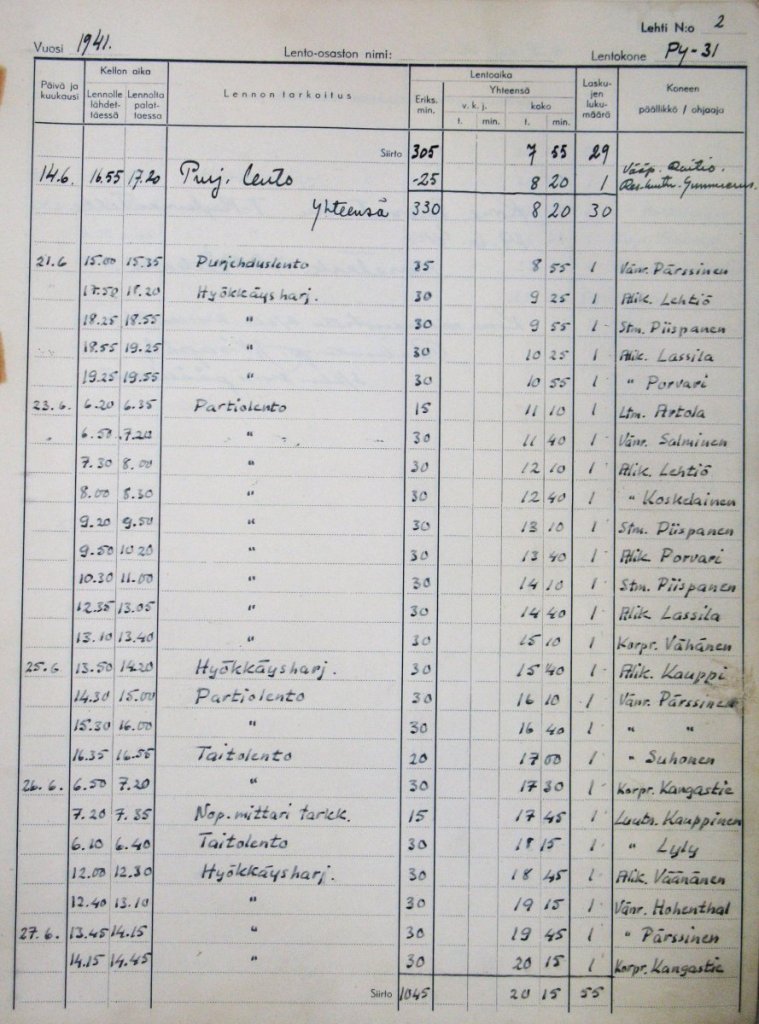 Lehti N:o 2
Vuosi 1941. Lento-osaston nimi: Lentokone Py-31
Päivä ja kuukausi Kellon aika Lennolle lähdettäessä Lennolta palattaessa Lennon tarkoitus Lentoaika Eriks. min. Yhteensä v. k. j. t. min. koko t. min. Laskujen lukumäärä Koneen päällikkö / ohjaaja
Siirto 305 7 55 29
14.6. 16.55 17.20 Purj. lento -25 8 20 1 Vääp. Raitio. Gummerus.
Yhteensä 330 8 20 30
21.6 15.00 15.35 Purjehduslento 35 8 55 1 Vänr. Pärssinen
17.50 18.20 Hyökkäysharj. 30 9 25 1 Alik. Lehtiö
18.25 18.55 " 30 9 55 1 Stm. Piispanen
18.55 19.25 " 30 10 25 1 Alik. Lassila
19.25 19.55 " 30 10 55 1 " Porvari
23.6. 6.20 6.35 Partiolento 15 11 10 1 Ltm. Artola
6.50 7.20 " 30 11 40 1 Vänr. Salminen
7.30 8.00 " 30 12 10 1 Alik. Lehtiö
8.00 8.30 " 30 12 40 1 " Koskelainen
9.20 9.50 " 30 13 10 1 Stm. Piispanen
9.50 10.20 " 30 13 40 1 Alik. Porvari
10.30 11.00 " 30 14 10 1 Stm. Piispanen
12.35 13.05 " 30 14 40 1 Alik. Lassila
13.10 13.40 " 30 15 10 1 Korpr. Vähänen
25.6 13.50 14.20 Hyökkäysharj. 30 15 40 1 Alik. Kauppi
14.30 15.00 Partiolento 30 16 10 1 Vänr. Pärssinen
15.30 16.00 " 30 16 40 1 " "
16.35 16.55 Taitolento 20 17 00 1 " Suhonen
26.6. 6.50 7.20 " 30 17 30 1 Korpr. Kangastie
7.20 7.35 Nop. mittari tarkk. 15 17 45 1 Luutn. Kauppinen
6.10 6.40 Taitolento 30 18 15 1 " Lyly
12.00 12.30 Hyökkäysharj. 30 18 45 1 Alik. Väänänen
12.40 13.10 " 30 19 15 1 Vänr. Hohenthal
27.6. 13.45 14.15 " 30 19 45 1 " Pärssinen
14.15 14.45 " 30 20 15 1 Korpr. Kangastie
Siirto 1045 20 15 55